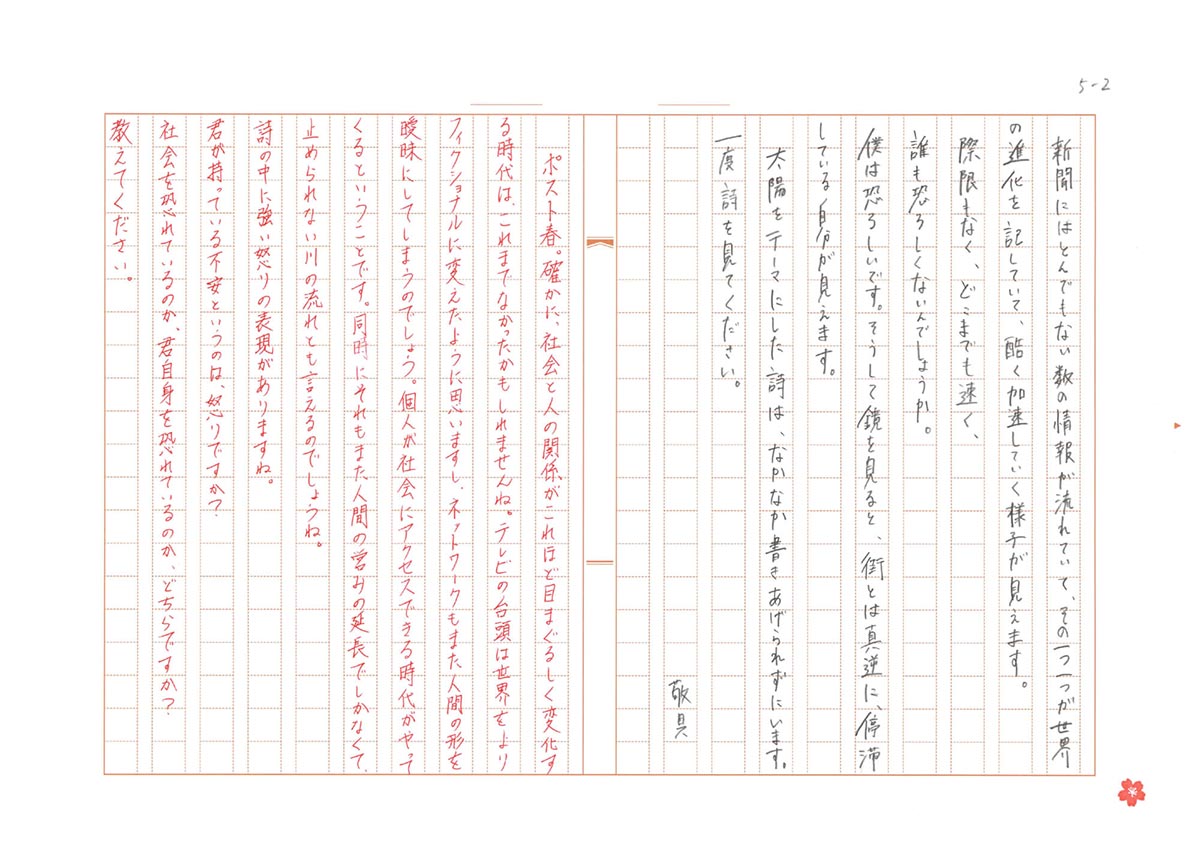 5-2
新聞にはとんでもない数の情報が流れていて、その一つ一つが世界
の進化を記していて、酷く加速していく様子が見えます。
際限もなく、どこまでも速く、
誰も恐ろしくないんでしょうか。
僕は恐ろしいです。そうして鏡を見ると、街とは真逆に、停滞
している自分が見えます。
太陽をテーマにした詩は、なかなか書きあげられずにいます。
一度詩を見てください。
敬具
ポスト春。確かに、社会と人の関係がこれほど目まぐるしく変化す
る時代は、これまでなかったかもしれませんね。テレビの台頭は世界をより
フィクショナルに変えたように思いますし、ネットワークもまた、人間の形を
曖昧にしてしまうのでしょう。個人が社会にアクセスできる時代がやって
くるということです。同時にそれもまた人間の営みの延長でしかなくて、
止められない川の流れとも言えるのでしょうね。
詩の中に強い怒りの表現がありますね。
君が持っている不安というのは、怒りですか？
社会を恐れているのか、君自身を恐れているのか、どちらですか？
教えてください。